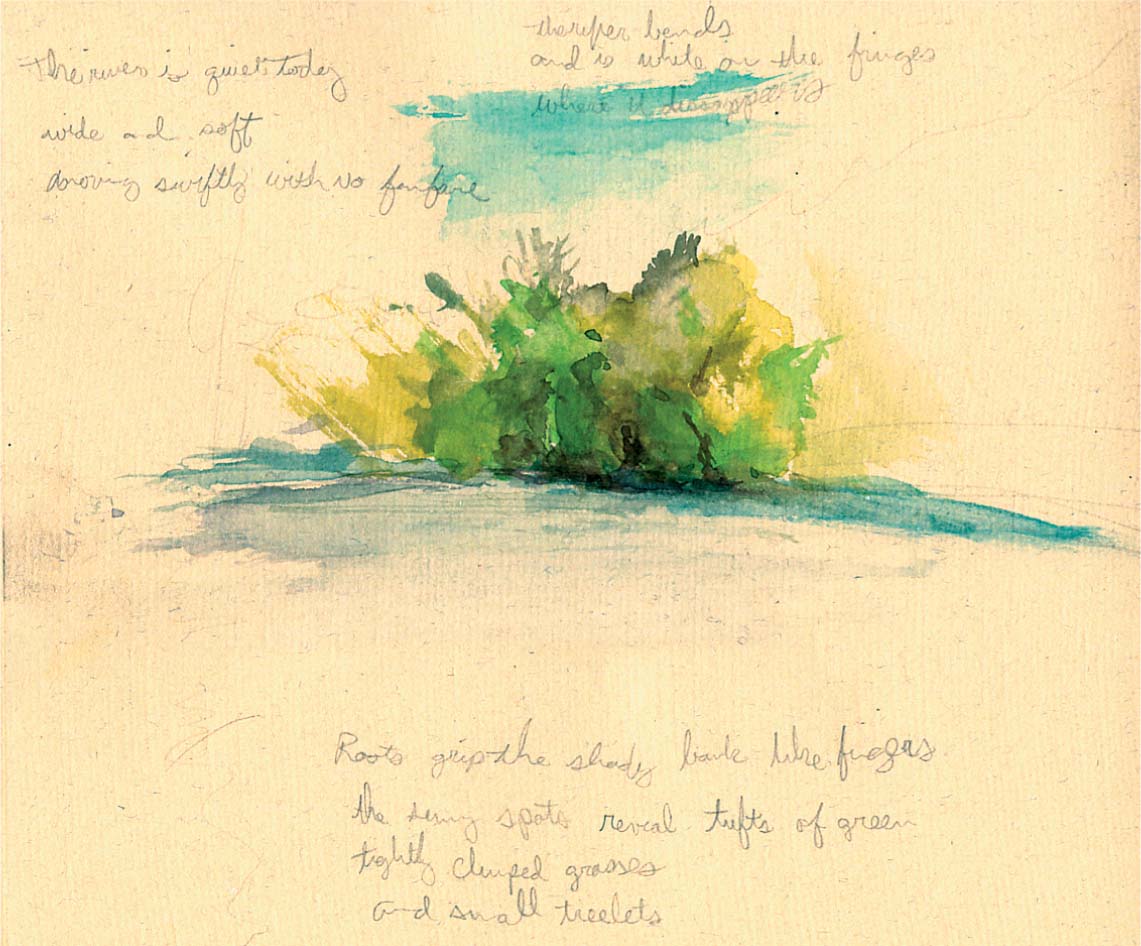 The river is quiet today
wide and soft
moving swiftly with no fanfare
the river bends
and is white on the fringes
where it disappears
Roots grip the shady bank like fingers
the sunny spots reveal tufts of green
tightly clumped grasses
and small treelets